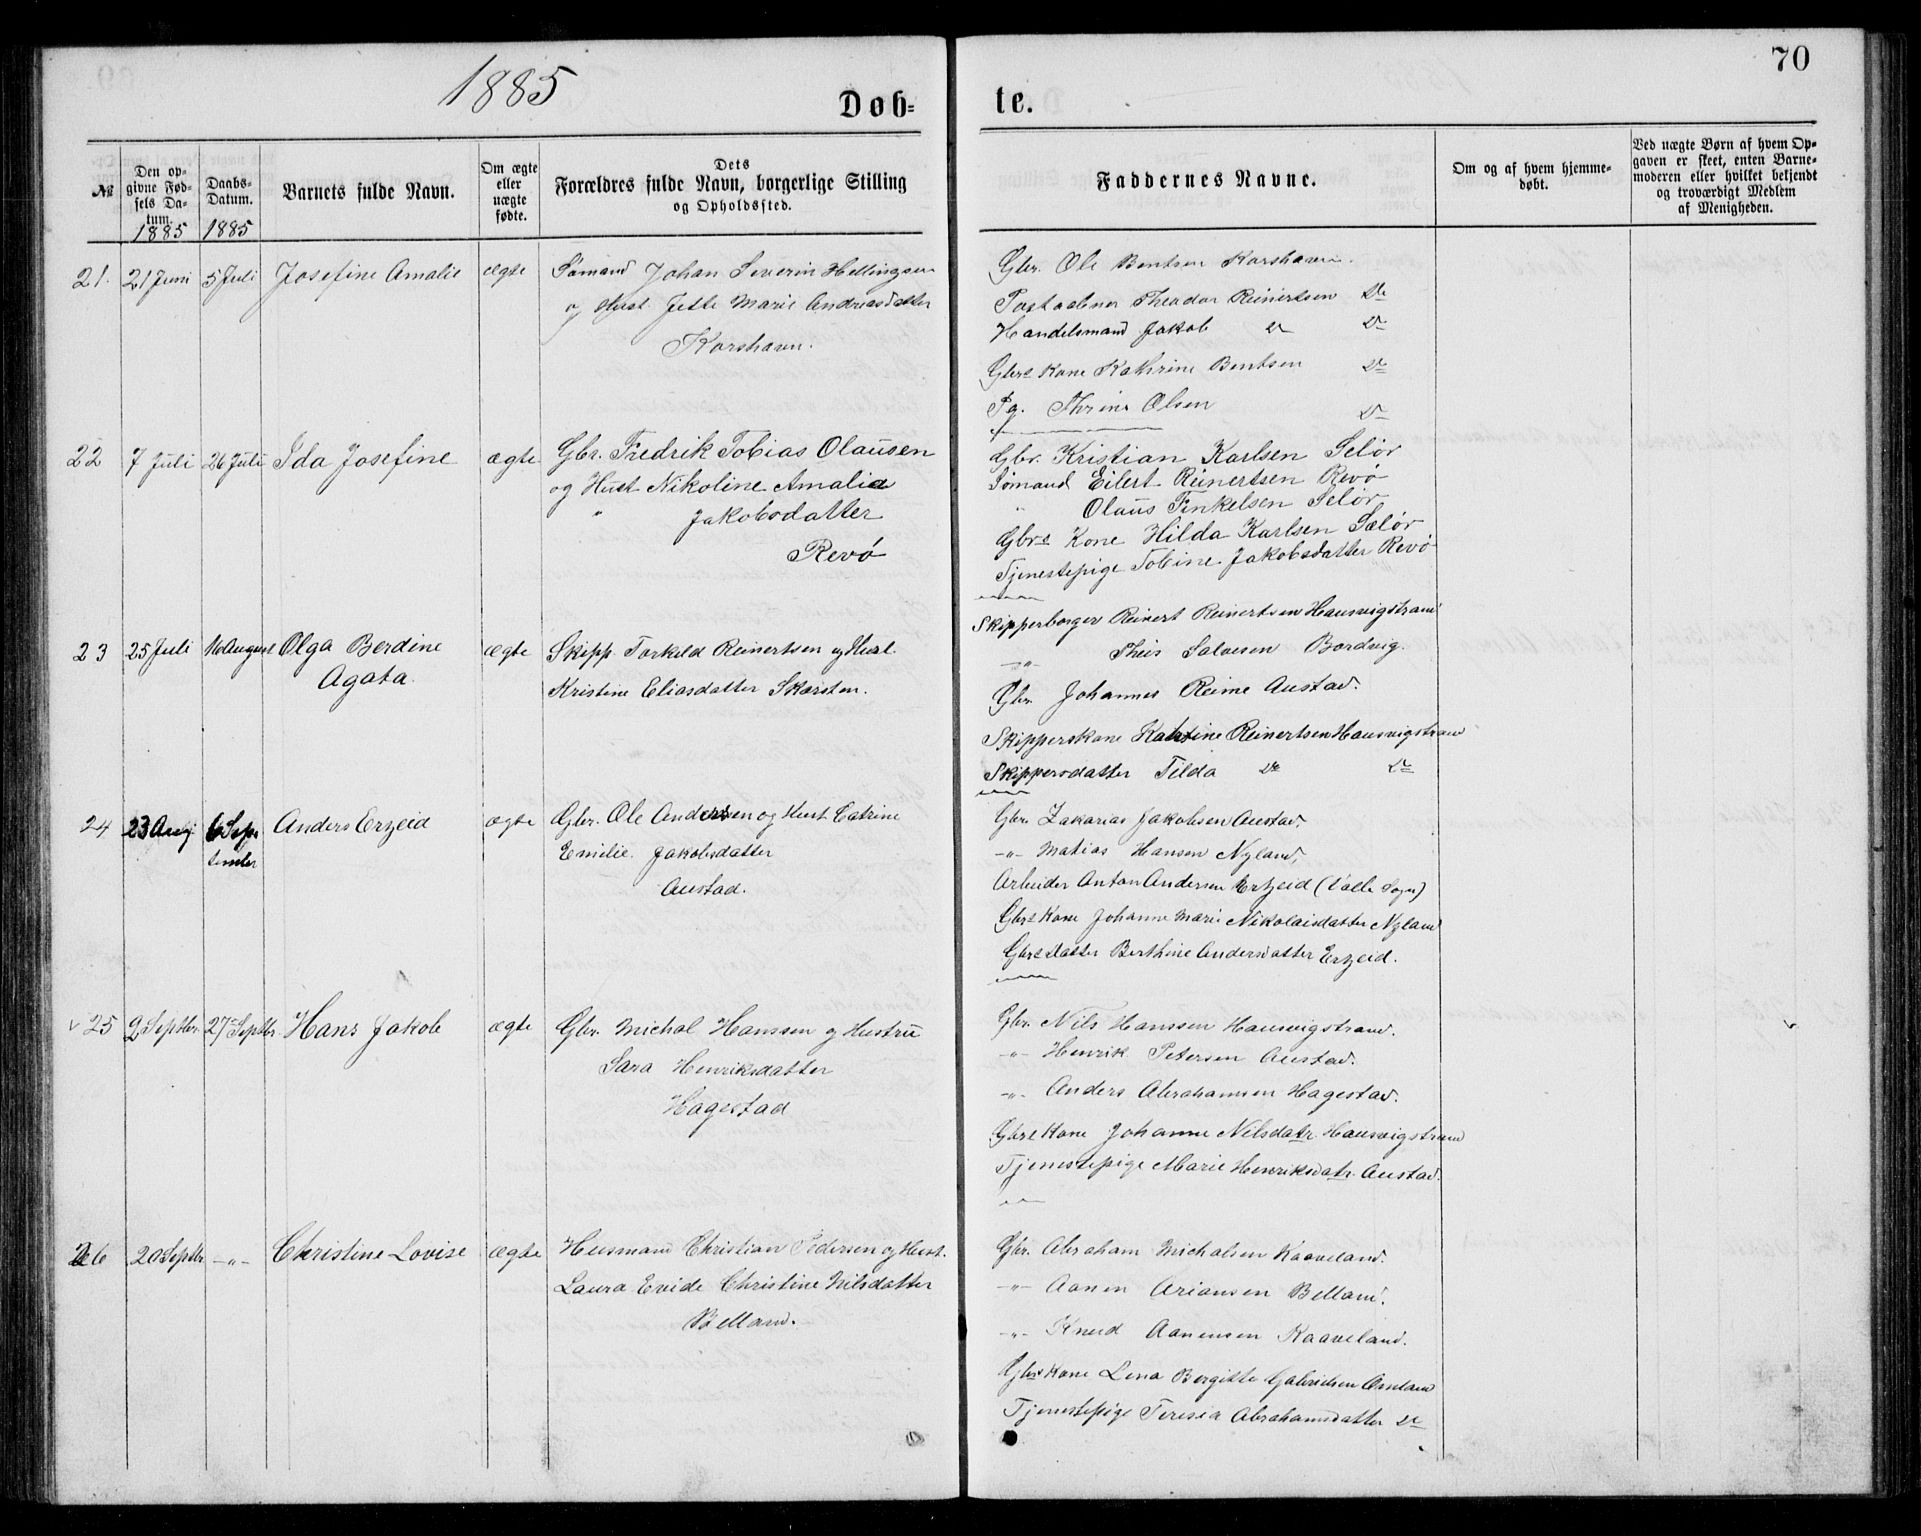 1885
70
Døb-
te.
№
Den op-
givne Fød-
sels Da-
tum.
1885
Daabs-
Datum.
1885
Barnets fulde Navn.
Om ægte
eller
uægte
fødte.
Dets
Forældres fulde Navn, borgerlige Stilling
og Opholdssted.
Faddernes Navne.
Om og af hvem hjemme-
døbt.
Ved uægte Børn af hvem Op-
gaven er skeet, enten Barne-
moderen eller hvilket bekjendt
og troværdigt Medlem
af Menigheden.
21. 21 Juni 5 Juli Josefine Amalie ægte Sømand Johan Severin Hellingsen
og Hust. Jette Marie Andreasdatter
Korshavn.
Gbr. Ole Bentsen Korshavn.
Postaabner Theodor Reinertsen Do
Handelsmand Jakob Do Do
Gbrs Kone Kathrine Bentsen Do
Pg. Thrine Olsen Do
22 7 Juli 26 Juli Ida Josefine ægte Gbr. Fredrik Tobias Olausen
og Hust Nikoline Amalia
" Jakobsdatter
Revø
Gbr. Kristian Karlsen Selør
Sømand Eilert Reinertsen Revø
" Olaus Finkelsen Selør
Gbrs Kone Hilda Karlsen Selør
Tjenestepige Tobine Jakobsdatter Revø
23 25 Juli 16 August Olga Berdine
Agata.
ægte Skipp. Torkild Reinertsen og Hust.
Kristine Eliasdatter Skarsten.
Skipperborger Reinert Reinertsen Hausvigstrand
-"- Theis Salvesen Bordvig.
Gbr. Johannes Reime Austad.
Skipperskone Katrine Reinertsen Hausvigstrand
Skippersdatter Tilda Do Do
24 23 Aug 6 Sep
tember
Anders Erzeid ægte Gbr. Ole Andersen og Hust Catrine
Emilie Jakobsdatter
Austad.
Gbr. Zakarias Jakobsen Austad.
-"- Matias Hansen Nyland,
Arbeider Anton Andersen Erzeid (Valle Sogn)
Gbrs Kone Johanne Marie Nikolaisdatter Nyland
Gbrs datter Berthine Andersdatter Erzeid.
v 25 2 Septbr. 27 Septbr. Hans Jakob ægte Gbr. Michal Hanssen og Hustru
Sara Henriksdatter
Hagestad
Gbr. Nils Hanssen Hausvigstrand.
-"- Henrik Petersen Austad.
-"- Anders Abrahamsen Hagestad.
Gbrs Kone Johanne Nilsdatr. Hausvigstrand
Tjenestepige Marie Henriksdatr. Austad.
26 20 Septbr -"- Christine Lovise ægte Husmand Christian Pedersen og Hust.
Laura Evide Christine Nilsdatter
Bølland.
Gbr. Abraham Michalsen Kaaveland.
-"- Aanen Ariansen Belland.
-"- Knud Aanensen Kaaveland.
Gbrs Kone Lena Bergitte Gabrielsen Omland
Tjenestepige Teresia Abrahamsdatter Do